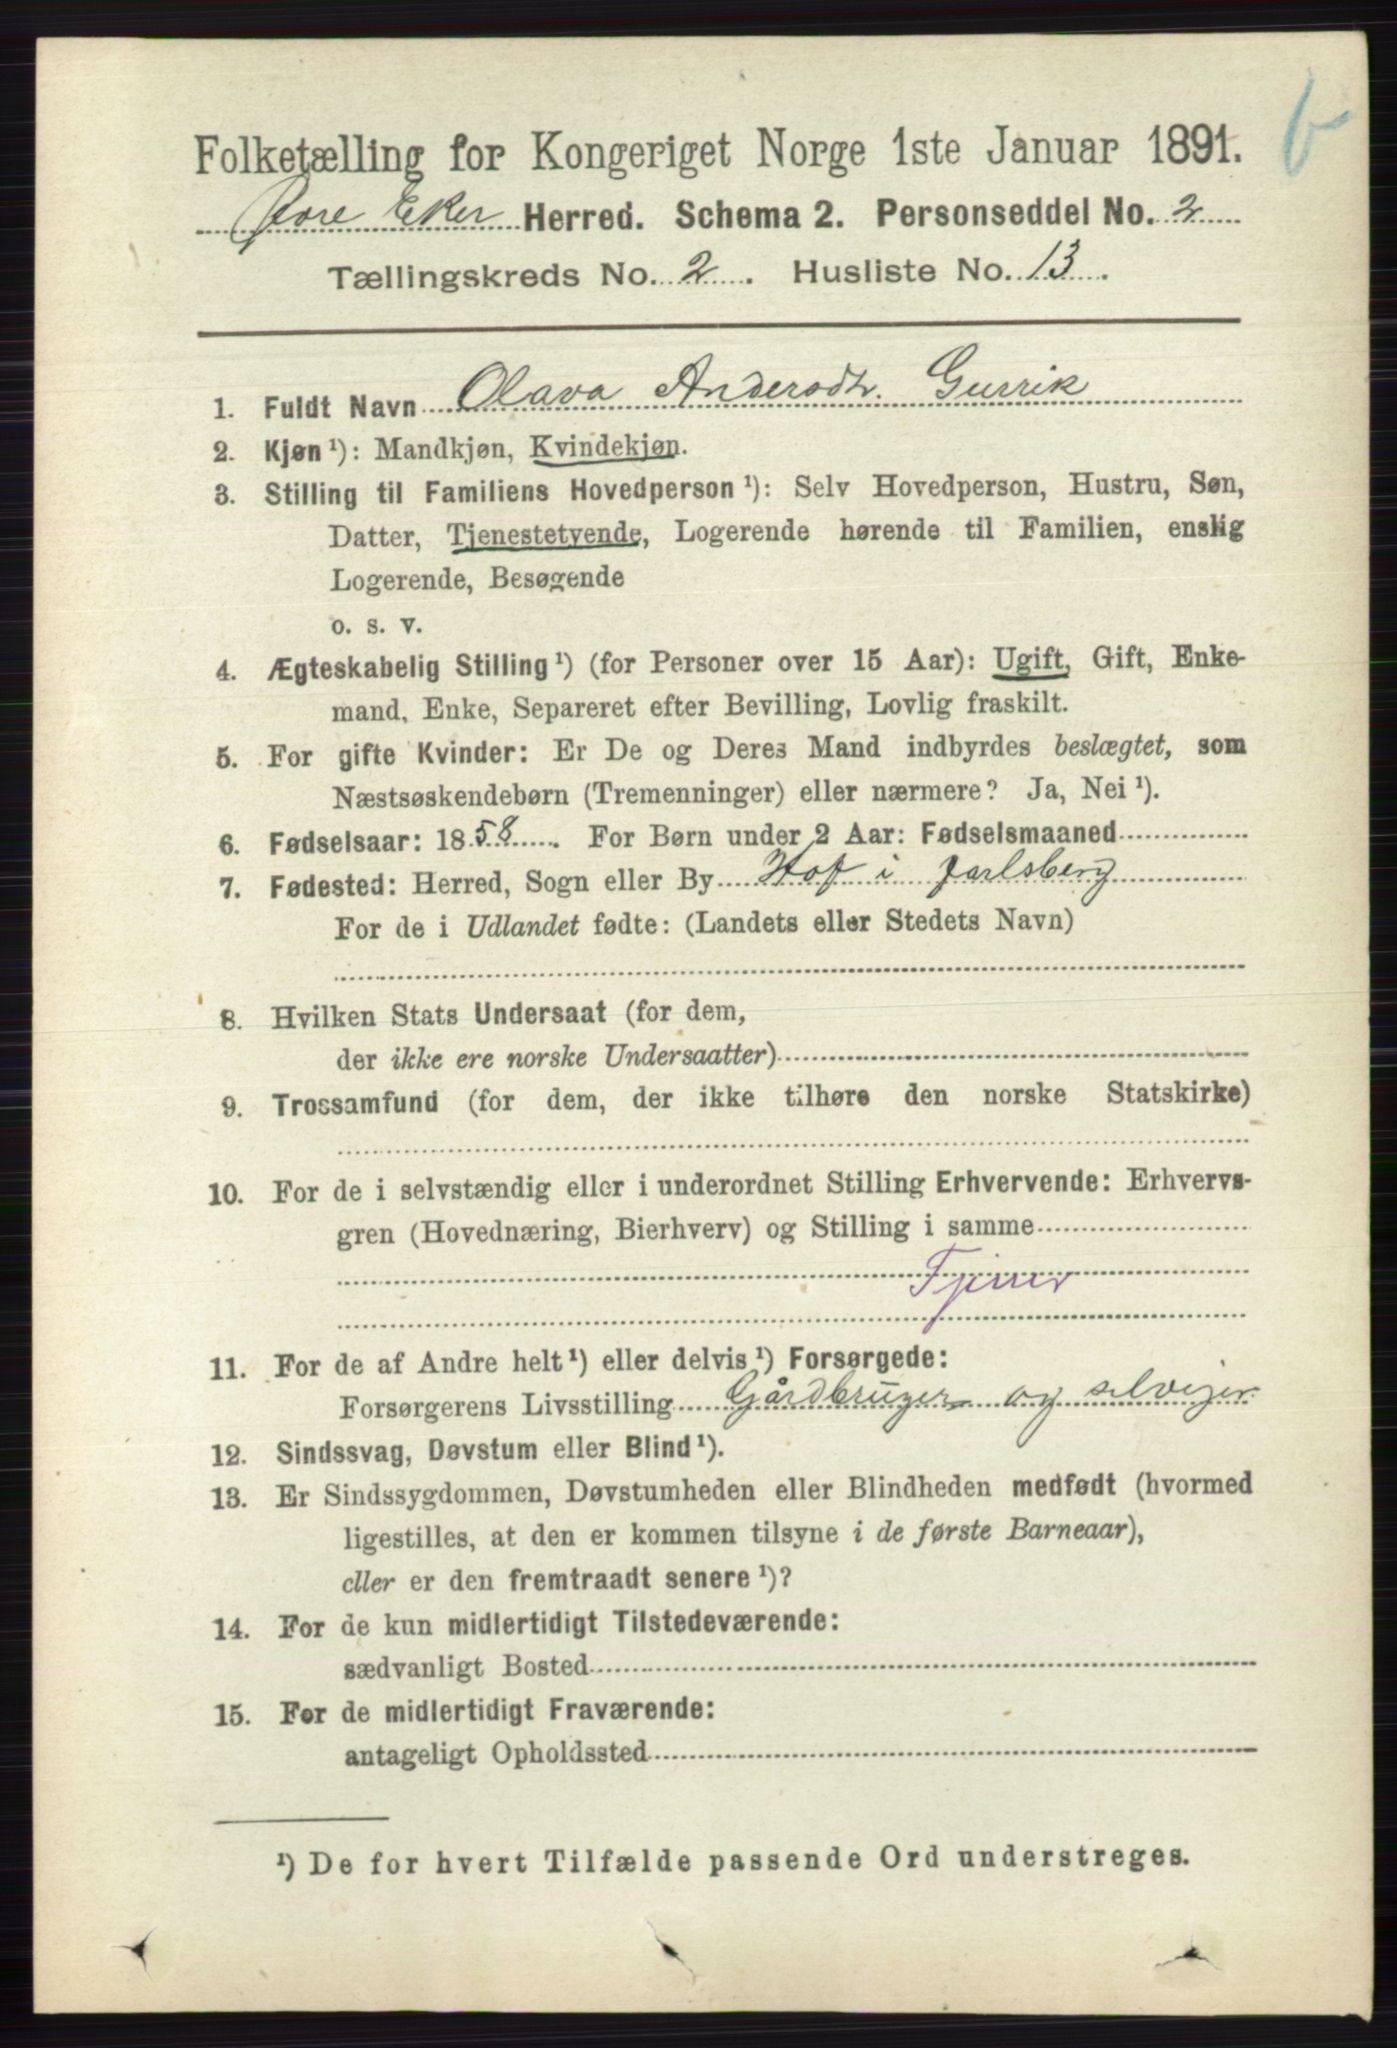 Folketælling for Kongeriget Norge 1ste Januar 1891.
Øvre Eker Herred. Schema 2. Personseddel No. 2
Tællingskreds No. 2. Husliste No. 13.
1. Fuldt Navn Olava Andersdtr. Gurrik
2. Kjøn¹): Mandkjøn, Kvindekjøn.
3. Stilling til Familiens Hovedperson¹): Selv Hovedperson, Hustru, Søn,
Datter, Tjenestetyende, Logerende hørende til Familien, enslig
Logerende, Besøgende
o. s. v.
4. Ægteskabelig Stilling¹) (for Personer over 15 Aar): Ugift, Gift, Enke-
mand, Enke, Separeret efter Bevilling, Lovlig fraskilt.
5. For gifte Kvinder: Er De og Deres Mand indbyrdes beslægtet, som
Næstsøskendebørn (Tremenninger) eller nærmere? Ja, Nei¹).
6. Fødselsaar: 1858. For Børn under 2 Aar: Fødselsmaaned
7. Fødested: Herred, Sogn eller By Hof i Jarlsberg
For de i Udlandet fødte: (Landets eller Stedets Navn)
8. Hvilken Stats Undersaat (for dem,
der ikke ere norske Undersaatter)
9. Trossamfund (for dem, der ikke tilhøre den norske Statskirke)
10. For de i selvstændig eller i underordnet Stilling Erhvervende: Erhvervs-
gren (Hovednæring, Bierhverv) og Stilling i samme
Tjener
11. For de af Andre helt¹) eller delvis¹) Forsørgede:
Forsørgerens Livsstilling Gårdbruger og selvejer
12. Sindssvag, Døvstum eller Blind¹).
13. Er Sindssygdommen, Døvstumheden eller Blindheden medfødt (hvormed
ligestilles, at den er kommen tilsyne i de første Barneaar),
eller er den fremtraadt senere¹)?
14. For de kun midlertidigt Tilstedeværende:
sædvanligt Bosted
15. For de midlertidigt Fraværende:
antageligt Opholdssted
¹) De for hvert Tilfælde passende Ord understreges.